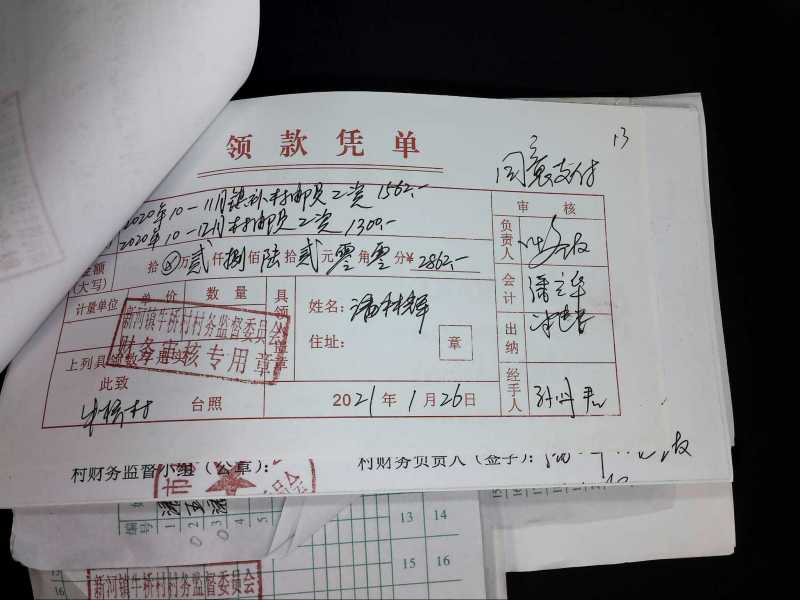 领款凭单
13
同意支付
2020年10-11月镇补村邮员工资 1562.-
2020年10-12月村邮员工资 1300.-
审核
金额(大写) 拾⊗万贰仟捌佰陆拾贰元零角零分¥2862.-
负责人
会计
出纳
经手人
计量单位 单价 数量
具领人盖章
姓名:
住址:
章
新河镇牛桥村村务监督委员会
财务审核专用章
上列具领数
此致
牛桥村 台照
2021年1月26日
村财务监督小组(公章):
村财务负责人(签字):
市
编号
1 2 3 4 5
13 14
15 16
新河镇牛桥村村务监督委员会